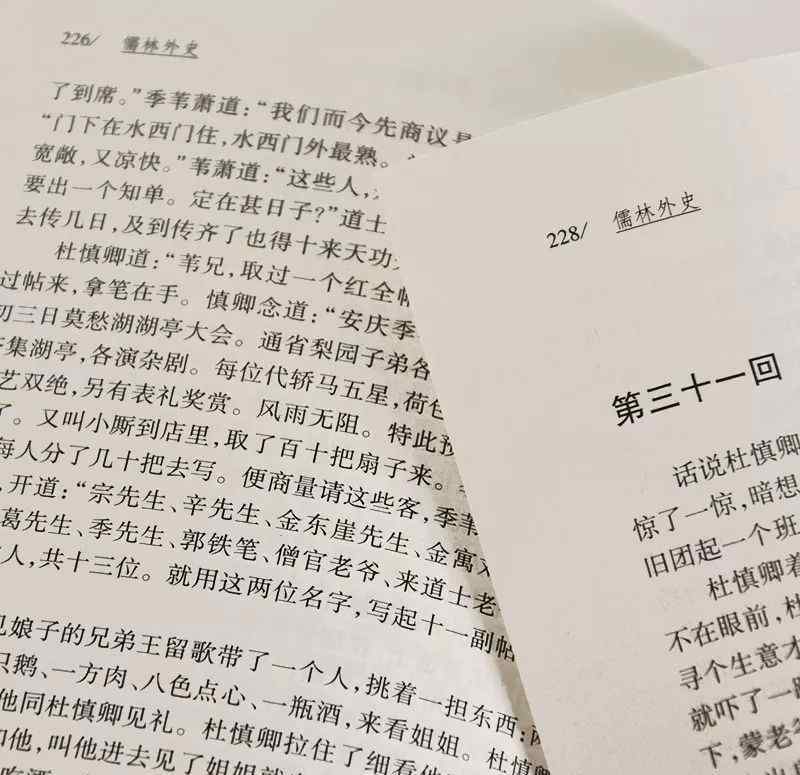 226/ 儒林外史
了到席。”季苇萧道：“我们而今先商议
“门下在水西门住，水西门外最熟。
宽敞，又凉快。”苇萧道：“这些人，
要出一个知单。定在甚日子？”道士
去传几日，及到传齐了也得十来天功
杜慎卿道：“苇兄，取过一个红全帖
过帖来，拿笔在手。慎卿念道：“安庆季
初三日莫愁湖湖亭大会。通省梨园子弟各
集湖亭，各演杂剧。每位代轿马五星，荷包
艺双绝，另有表礼奖赏。风雨无阻。特此预
了。又叫小厮到店里，取了百十把扇子来。
每人分了几十把去写。便商量请这些客，季苇
，开道：“宗先生、辛先生、金东崖先生、金寓
葛先生、季先生、郭铁笔、僧官老爷、来道士老
人，共十三位。就用这两位名字，写起十一副帖
见娘子的兄弟王留歌带了一个人，挑着一担东西：两
只鹅、一方肉、八色点心、一瓶酒，来看姐姐。杜慎
他同杜慎卿见礼。杜慎卿拉住了细看他
如他，叫他进去见了姐姐就
228/ 儒林外史
第三十一回
话说杜慎卿
惊了一惊，暗想
旧团起一个班
杜慎卿着
不在眼前，杜
寻个生意才
就吓了一跳
下，蒙老爷